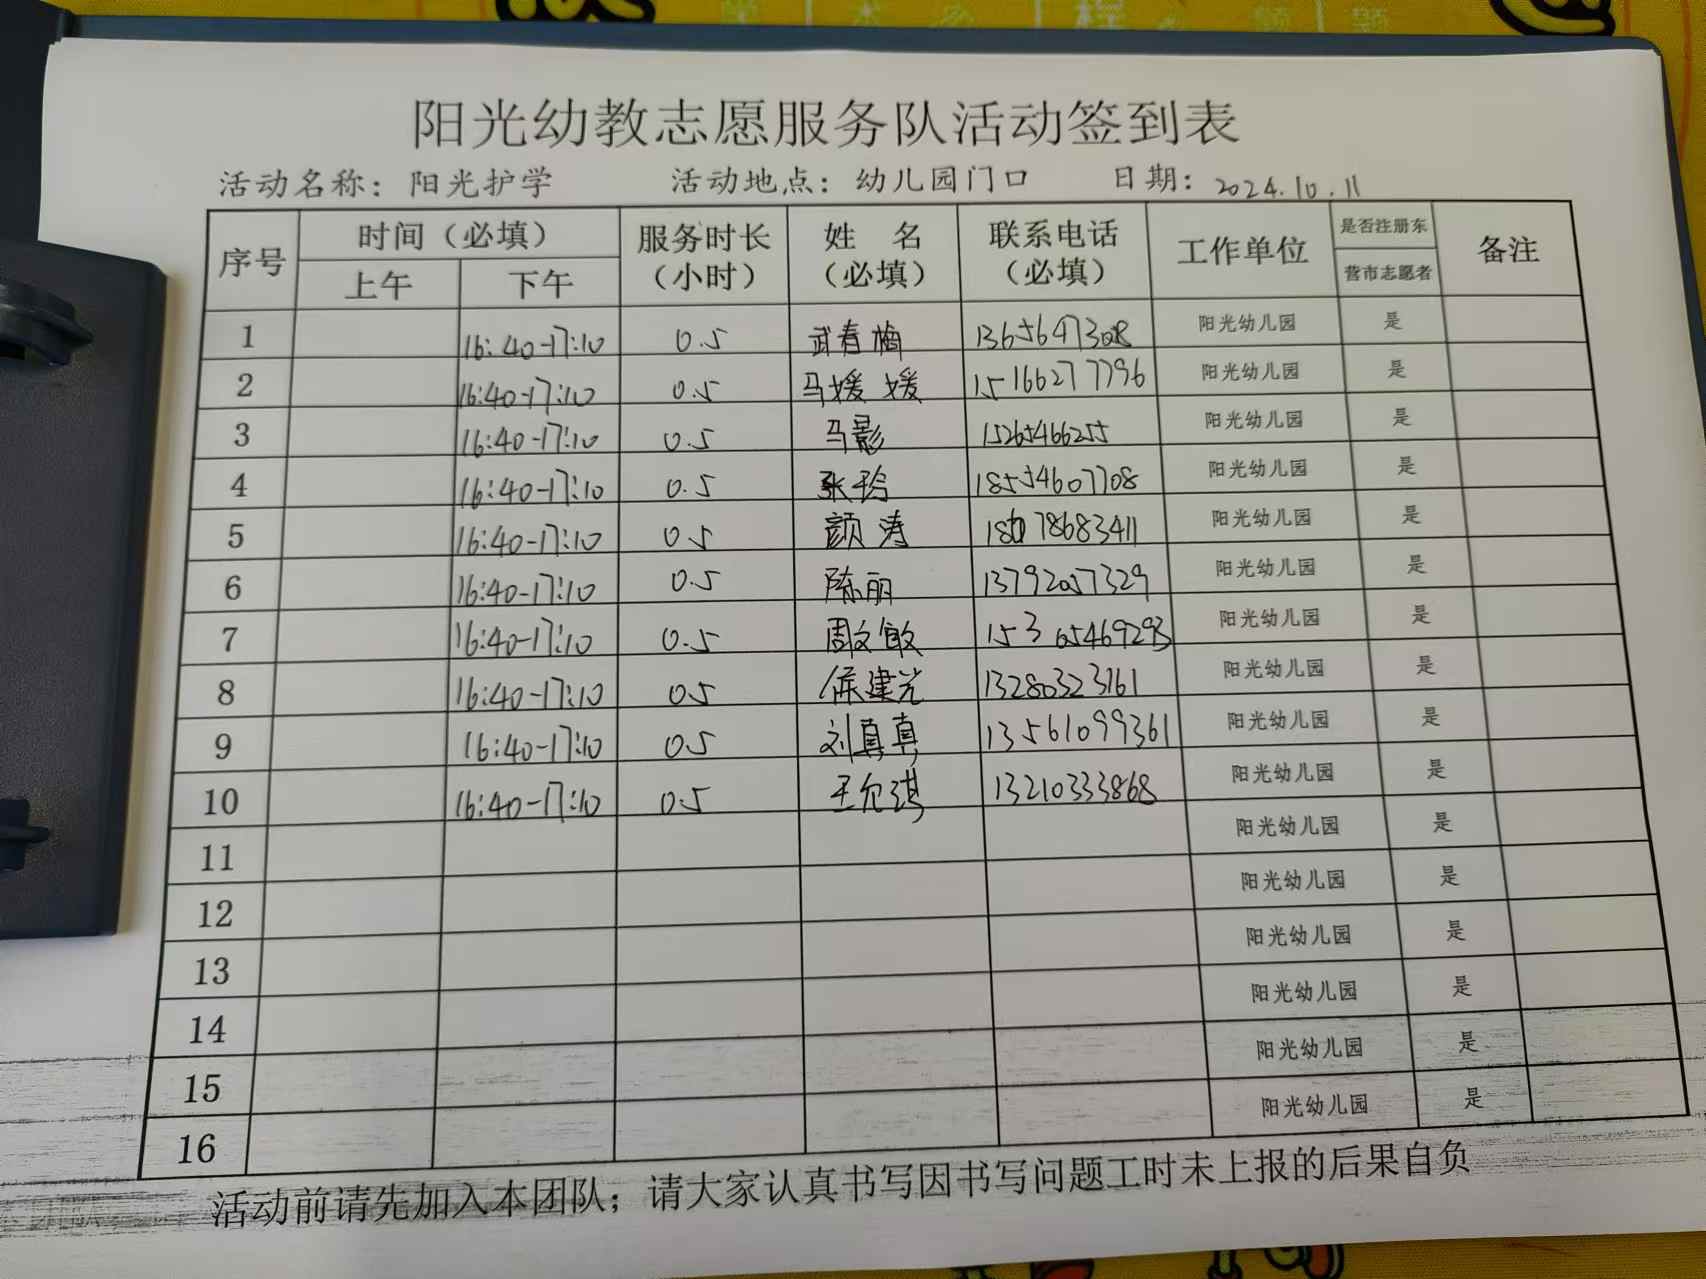 阳光幼教志愿服务队活动签到表
活动名称：阳光护学 活动地点：幼儿园门口 日期：2024.10.11
序号 时间（必填） 服务时长（小时） 姓 名（必填） 联系电话（必填） 工作单位 是否注册东营市志愿者 备注
上午 下午
1 16:40-17:10 0.5 武春梅 13656473208 阳光幼儿园 是
2 16:40-17:10 0.5 马媛媛 15166277796 阳光幼儿园 是
3 16:40-17:10 0.5 马影 15265466255 阳光幼儿园 是
4 16:40-17:10 0.5 张玲 18554607708 阳光幼儿园 是
5 16:40-17:10 0.5 颜涛 阳光幼儿园 是
6 16:40-17:10 0.5 陈丽 13792057329 阳光幼儿园 是
7 16:40-17:10 0.5 周文敏 15365469293 阳光幼儿园 是
8 16:40-17:10 0.5 侯建光 13280323161 阳光幼儿园 是
9 16:40-17:10 0.5 刘真真 13561099361 阳光幼儿园 是
10 16:40-17:10 0.5 王允琪 13210333868 阳光幼儿园 是
11 阳光幼儿园 是
12 阳光幼儿园 是
13 阳光幼儿园 是
14 阳光幼儿园 是
15 阳光幼儿园 是
16 阳光幼儿园 是
活动前请先加入本团队；请大家认真书写因书写问题工时未上报的后果自负